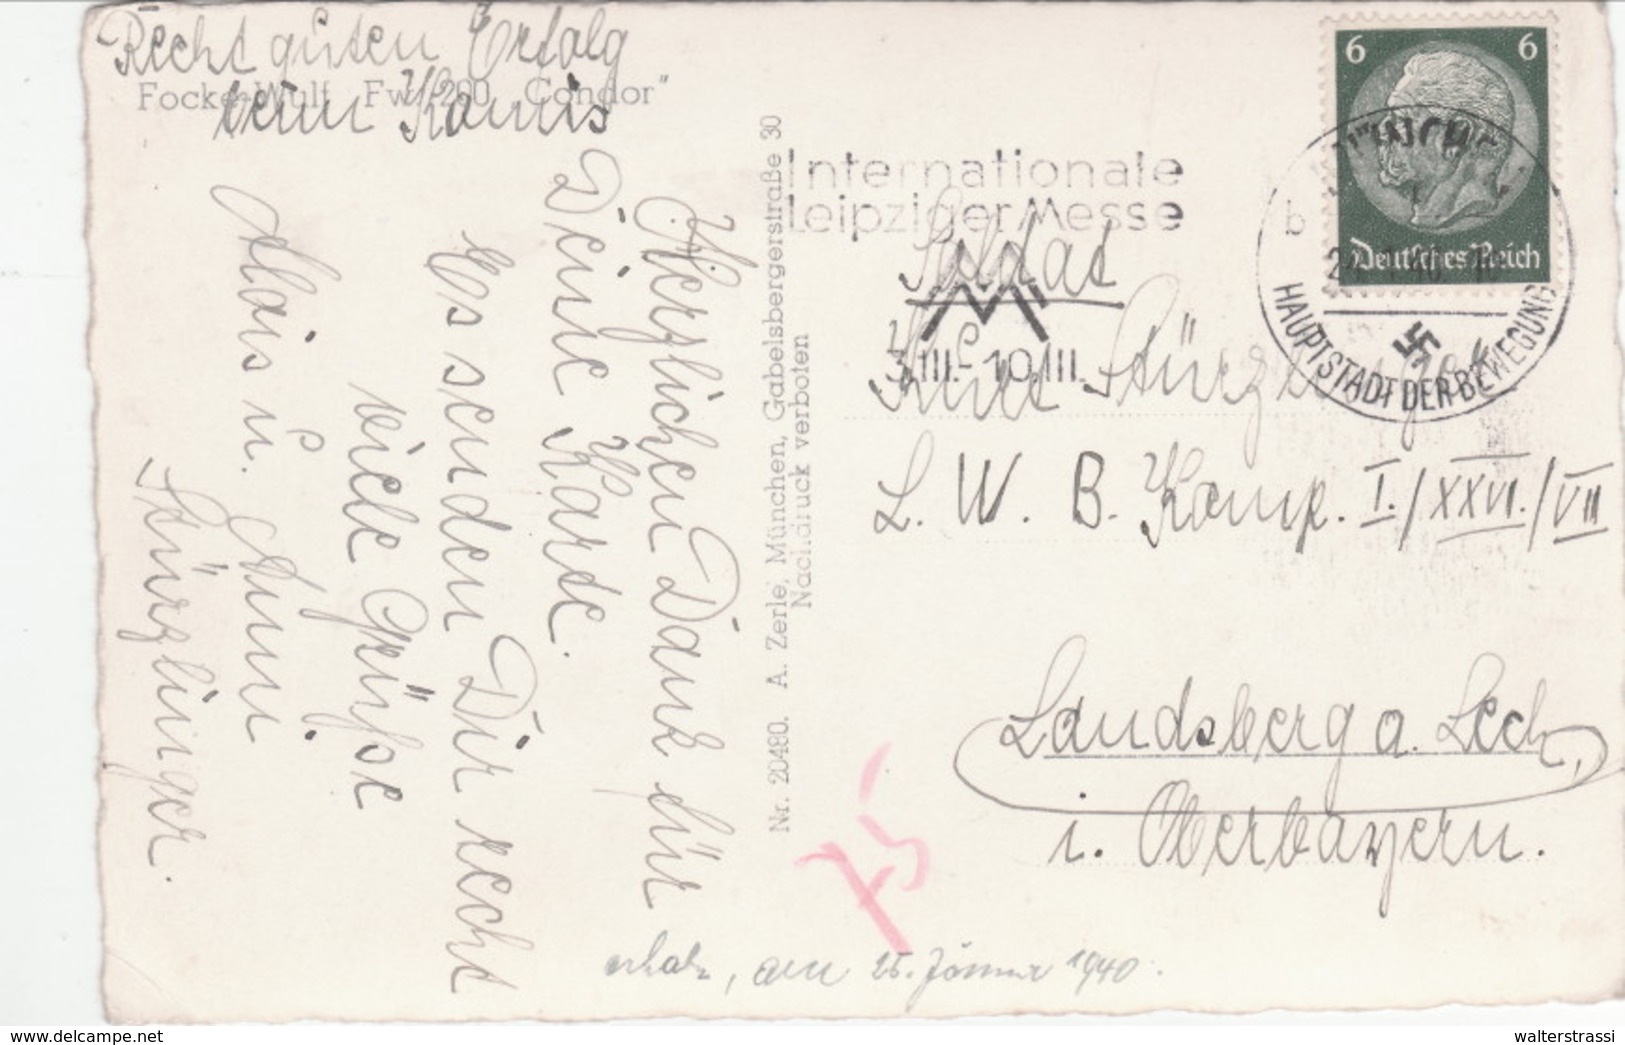 Recht guten Erfolg
beim Komis
Focke-Wulf Fw 200 „Condor"
Herzlichen Dank für
Deine Karde.
Es senden Dir recht
viele Grüße
Alois u. Anni
Stürzlinger.
Nr. 20480. A. Zerle, München, Gabelsbergerstraße 30
Nachdruck verboten
Internationale
Leipziger Messe
3.III.-10.III.
6 6
Deutsches Reich
b
HAUPTSTADT DER BEWEGUNG
Soldat
Stürzlinger
L. W. B. Komp. I./XXVI./VII
Landsberg a. Lech,
i. Oberbayern.
75
am 25. Jänner 1940.
delcampe.net
walterstrassi